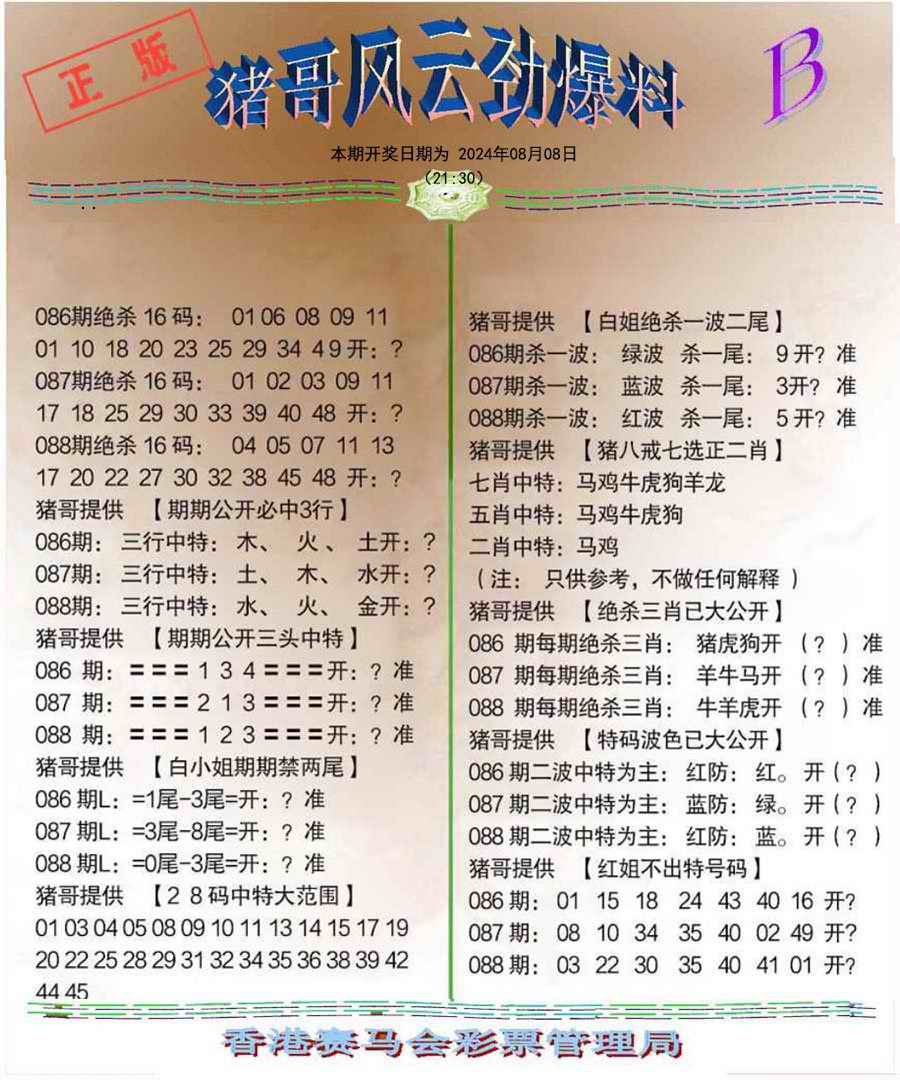 正版
猪哥风云劲爆料
B
本期开奖日期为 2024年08月08日
（21:30）
086期绝杀 16 码： 01 06 08 09 11
01 10 18 20 23 25 29 34 4 9 开：?
087期绝杀 16 码： 01 02 03 09 11
17 18 25 29 30 33 39 40 48 开：?
088期绝杀 16 码： 04 05 07 11 13
17 20 22 27 30 32 38 45 48 开：?
猪哥提供 【期期公开必中3行】
086期： 三行中特： 木、 火、 土开：?
087期： 三行中特： 土、 木、 水开：?
088期： 三行中特： 水、 火、 金开：?
猪哥提供 【期期公开三头中特】
086 期：===1 3 4===开：? 准
087 期：===2 1 3===开：? 准
088 期：===1 2 3===开：? 准
猪哥提供 【白小姐期期禁两尾】
086 期L：=1尾-3尾=开：? 准
087 期L：=3尾-8尾=开：? 准
088 期L：=0尾-3尾=开：? 准
猪哥提供 【2 8码中特大范围】
01 03 04 05 08 09 10 11 13 14 15 17 19
20 22 25 28 29 31 32 34 35 36 38 39 42
44 45
猪哥提供 【白姐绝杀一波二尾】
086期杀一波： 绿波 杀一尾： 9 开? 准
087期杀一波： 蓝波 杀一尾： 3开? 准
088期杀一波： 红波 杀一尾： 5 开? 准
猪哥提供 【猪八戒七选正二肖】
七肖中特：马鸡牛虎狗羊龙
五肖中特：马鸡牛虎狗
二肖中特：马鸡
（注： 只供参考，不做任何解释 ）
猪哥提供 【绝杀三肖已大公开】
086 期每期绝杀三肖： 猪虎狗开 （? ）准
087 期每期绝杀三肖： 羊牛马开 （? ）准
088 期每期绝杀三肖： 牛羊虎开 （? ）准
猪哥提供 【特码波色已大公开】
086 期二波中特为主： 红防： 红。 开（? ）
087 期二波中特为主： 蓝防： 绿。 开（? ）
088 期二波中特为主： 红防： 蓝。 开（? ）
猪哥提供 【红姐不出特号码】
086 期： 01 15 18 24 43 40 16 开?
087 期： 08 10 34 35 40 02 49 开?
088 期： 03 22 30 35 40 41 01 开?
香港赛马会彩票管理局